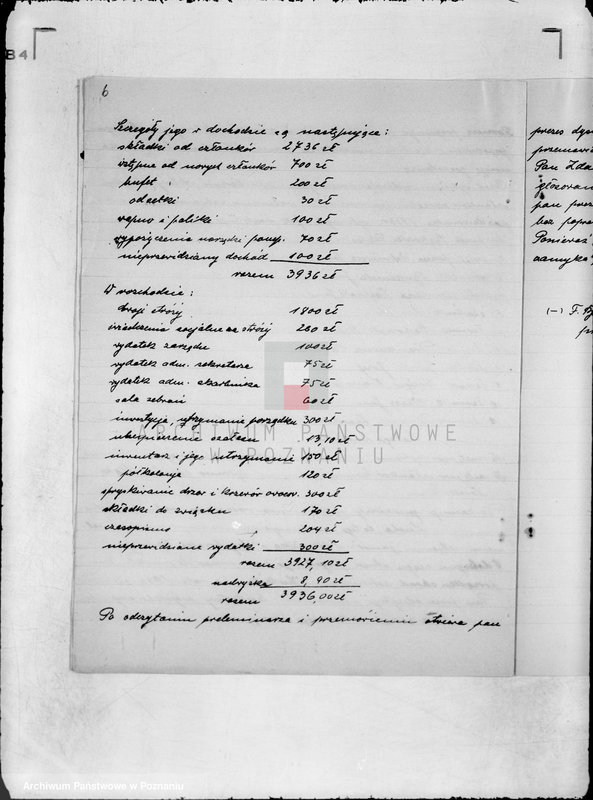 B4
6
Szczegóły jego w dochodzie są następujące:
składki od członków 2736 zł
wstępne od nowych członków 700 zł
bufet 200 zł
odsetki 30 zł
wapno i palitki 100 zł
wypożyczenie narzędzi 70 zł
nieprzewidziany dochód 100 zł
razem 3936 zł
W rozchodzie:
stróż 1800 zł
świadczenia socjalne za stróży 200 zł
wydatek zarządu 100 zł
wydatek adm. sekretarza 75 zł
wydatek adm. skarbnika 75 zł
sala zebrań 60 zł
inwestycje, utrzymanie porządku 300 zł
ubezpieczenie 13,10 zł
inwentarz i jego utrzymanie 150 zł
półkolonje 120 zł
spryskiwanie drzew i krzewów owoc. 300 zł
składki do związku 170 zł
czasopismo 204 zł
nieprzewidziane wydatki 300 zł
razem 3927,10 zł
nadwyżka 8,90 zł
razem 3936,00 zł
Po odczytaniu preliminarza i przemówieniu otwiera pan
prezes
Pan
pan
bez
(-) F.
ARCHIWUM PAŃSTWOWE
W POZNANIU
Archiwum Państwowe w Poznaniu